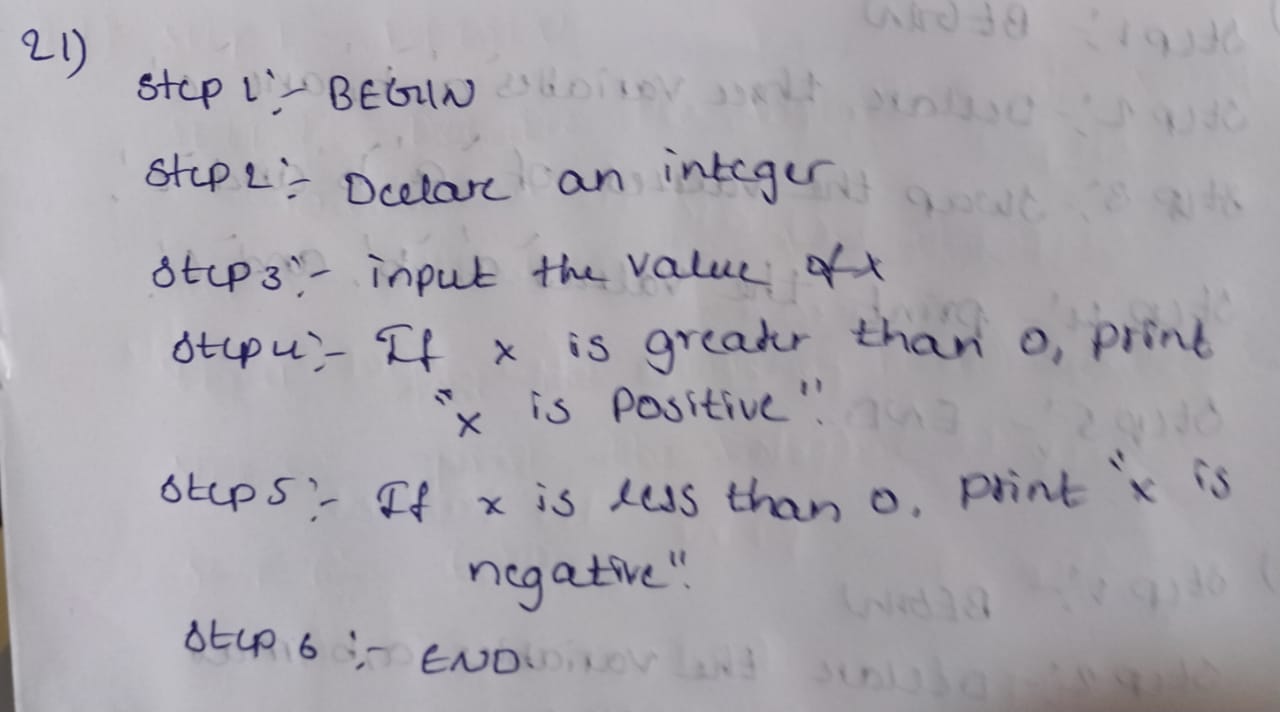 21)
Step 1:- BEGIN
Step 2:- Declare an integer
Step 3:- input the value of x
Step 4:- If x is greater than 0, print
"x is positive".
Step 5:- If x is less than 0. print "x is
negative".
Step 6:- END